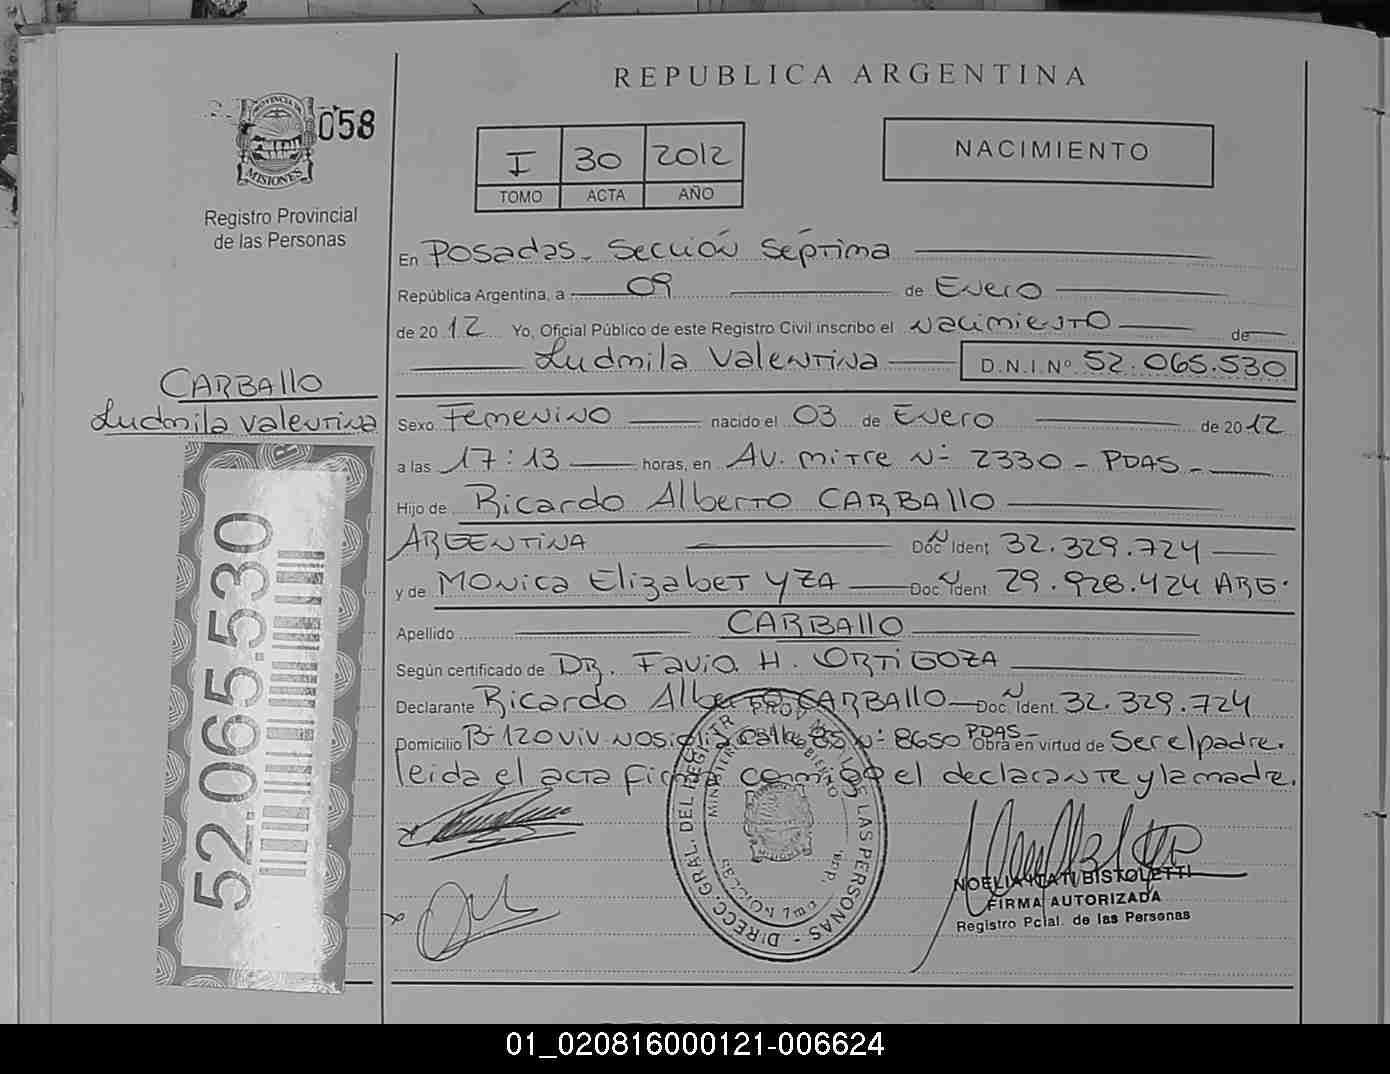 REPUBLICA ARGENTINA
PROVINCIA DE
MISIONES
058
Registro Provincial
de las Personas
I 30 2012
TOMO ACTA AÑO
NACIMIENTO
En Posadas. Sección Séptima
República Argentina, a 09 de Enero
de 2012 Yo, Oficial Público de este Registro Civil inscribo el Nacimiento de
Ludmila Valentina D.N.I.Nº 52.065.530
CARBAllO
Ludmila Valentina
Sexo Femenino nacido el 03 de Enero de 2012
a las 17:13 horas, en AV. mitre N° 2330 - PDAS -
Hijo de Ricardo Alberto CARBAllO
ARGENTINA Doc. Ident 32.329.724
y de MONica Elizabet YZA Doc. Ident. 29.928.424 ARG.
Apellido CARBAllO
Según certificado de DR. Favio H. ORTIGOZA
Declarante Ricardo Alberto CARBAllO Doc. Ident. 32.329.724
Domicilio B° 120 viv Calle 85 N° 8650 PDAS - Obra en virtud de Ser el padre.
leida el acta firma conmigo el declarante y la madre.
52.065.530
DIRECC. GRAL. DEL REGISTRO PROVINCIAL DE LAS PERSONAS
MINISTERIO DE GOBIERNO
NOELIA ITATI BISTOLETTI
FIRMA AUTORIZADA
Registro Pcial. de las Personas
01_020816000121-006624